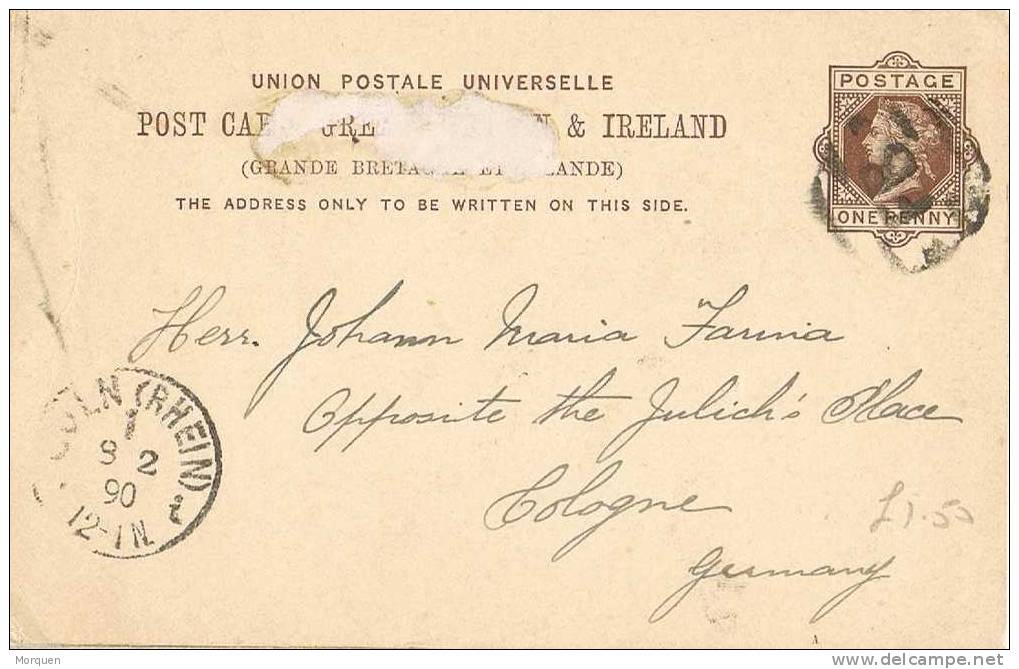 UNION POSTALE UNIVERSELLE
POST CARD GREAT BRITAIN & IRELAND
(GRANDE BRETAGNE ET IRLANDE)
THE ADDRESS ONLY TO BE WRITTEN ON THIS SIDE.
POSTAGE
ONE PENNY
Herr. Johann Maria Farina
Opposite the Julich's Place
Cologne
Germany
£1.50
KÖLN (RHEIN)
1
8 2
90
12-1N.
Morquen
www.delcampe.net